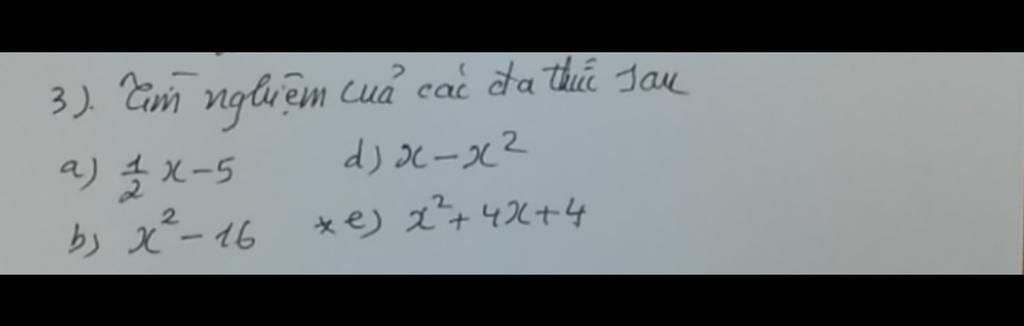 3). Tìm nghiệm của các đa thức sau
a) 1/2 x - 5 d) x - x²
b) x² - 16 * e) x² + 4x + 4